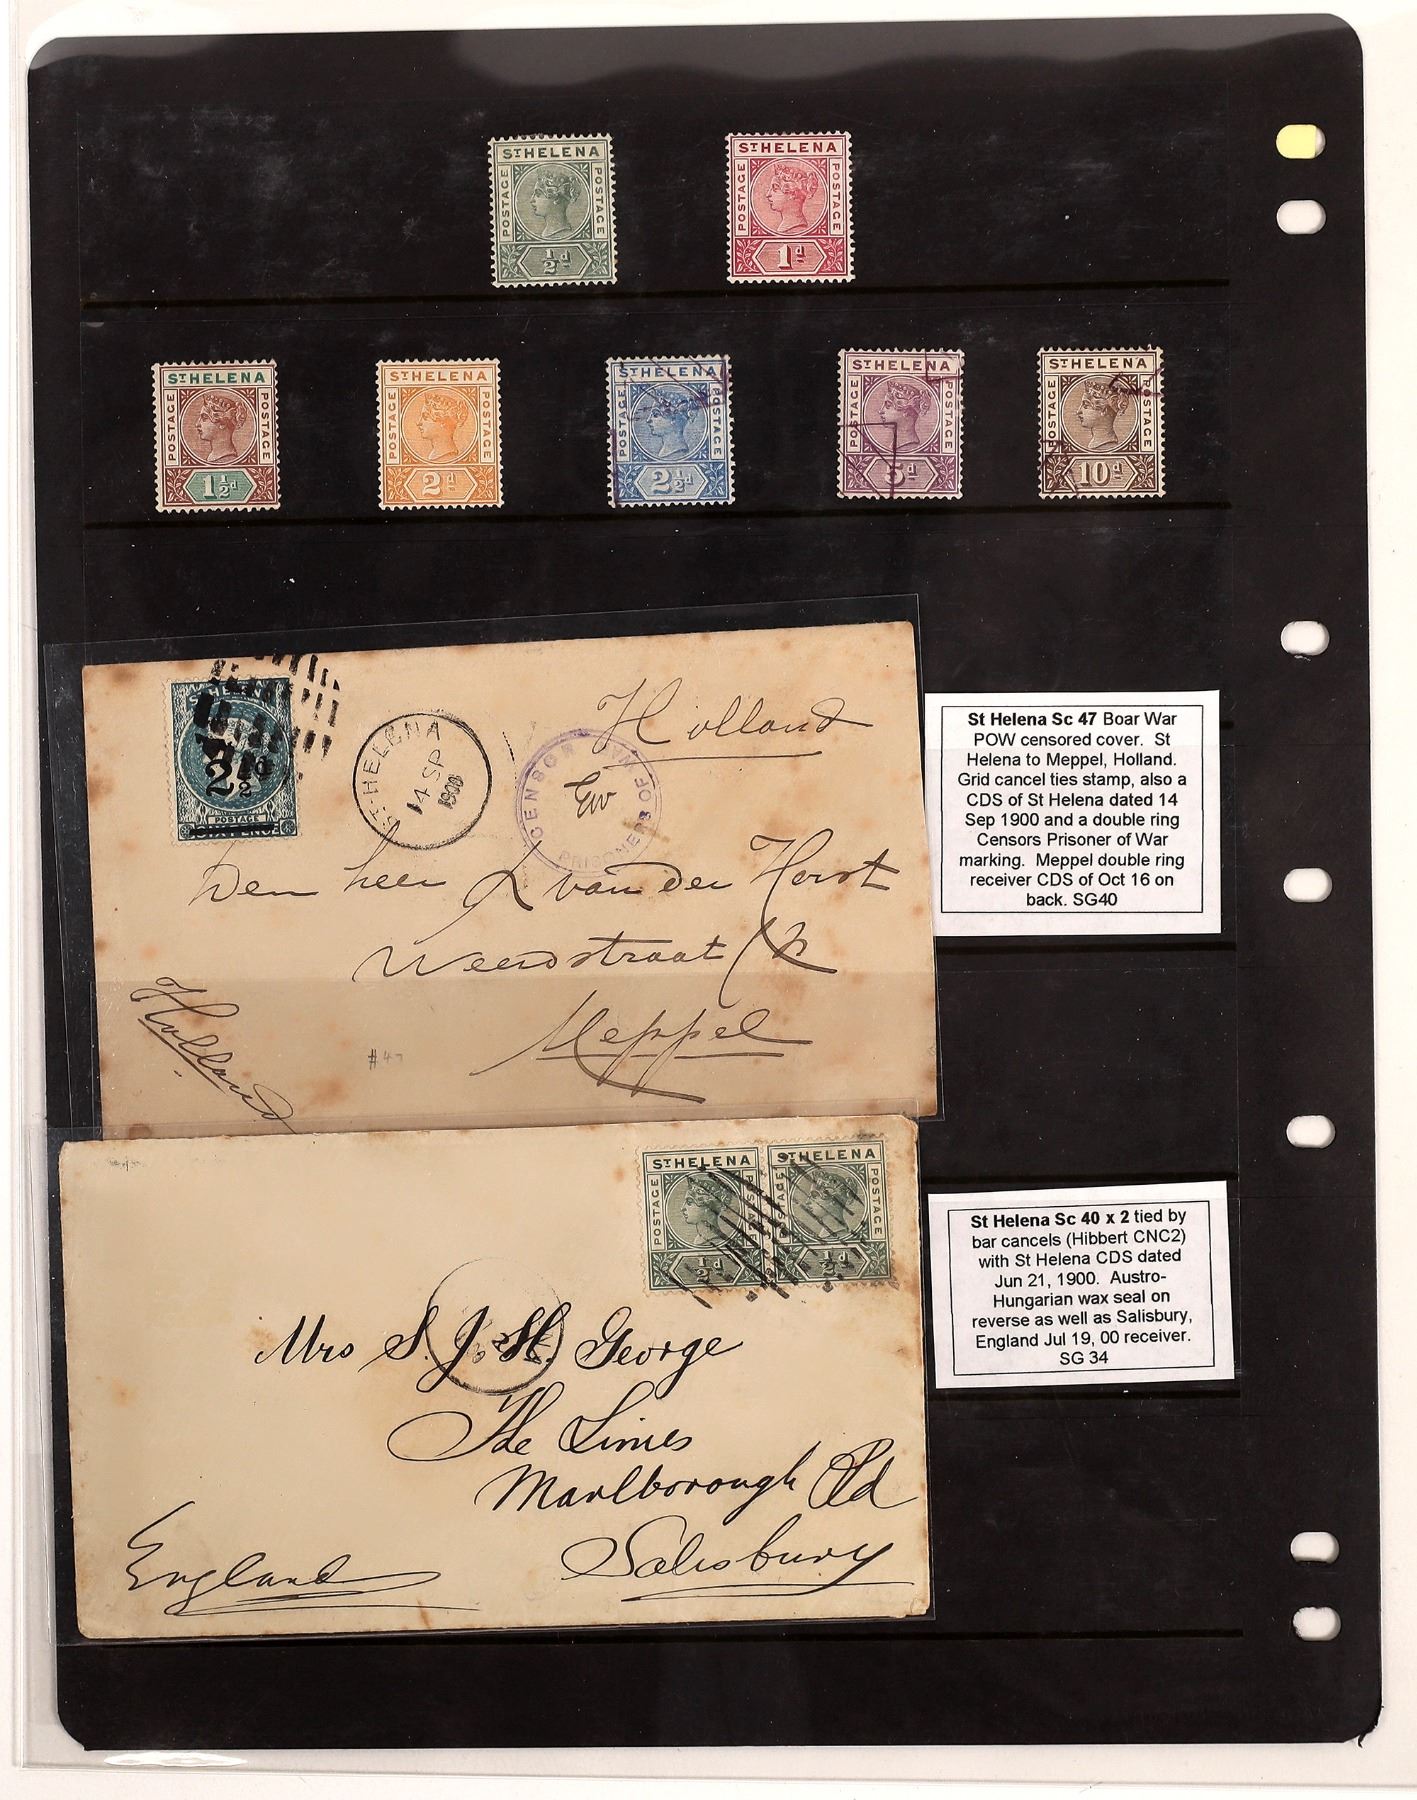 ST HELENA
POSTAGE POSTAGE
½d
ST HELENA
POSTAGE POSTAGE
1d
ST HELENA
POSTAGE POSTAGE
1½d
ST HELENA
POSTAGE POSTAGE
2d
ST HELENA
POSTAGE POSTAGE
2½d
ST HELENA
POSTAGE POSTAGE
5d
ST HELENA
POSTAGE POSTAGE
10d
ST HELENA
2½d
POSTAGE
SIXPENCE
ST. HELENA
14 SP
1900
CENSOR
PRISONERS OF WAR
Holland
Den heer L van der Horst
Weerdstraat
Meppel
Holland
#47
St Helena Sc 47 Boar War
POW censored cover. St
Helena to Meppel, Holland.
Grid cancel ties stamp, also a
CDS of St Helena dated 14
Sep 1900 and a double ring
Censors Prisoner of War
marking. Meppel double ring
receiver CDS of Oct 16 on
back. SG40
ST HELENA
POSTAGE
½d
ST HELENA
POSTAGE POSTAGE
½d
Mrs S. J. H. George
The Limes
Marlborough Rd
Salisbury
England
St Helena Sc 40 x 2 tied by
bar cancels (Hibbert CNC2)
with St Helena CDS dated
Jun 21, 1900. Austro-
Hungarian wax seal on
reverse as well as Salisbury,
England Jul 19, 00 receiver.
SG 34